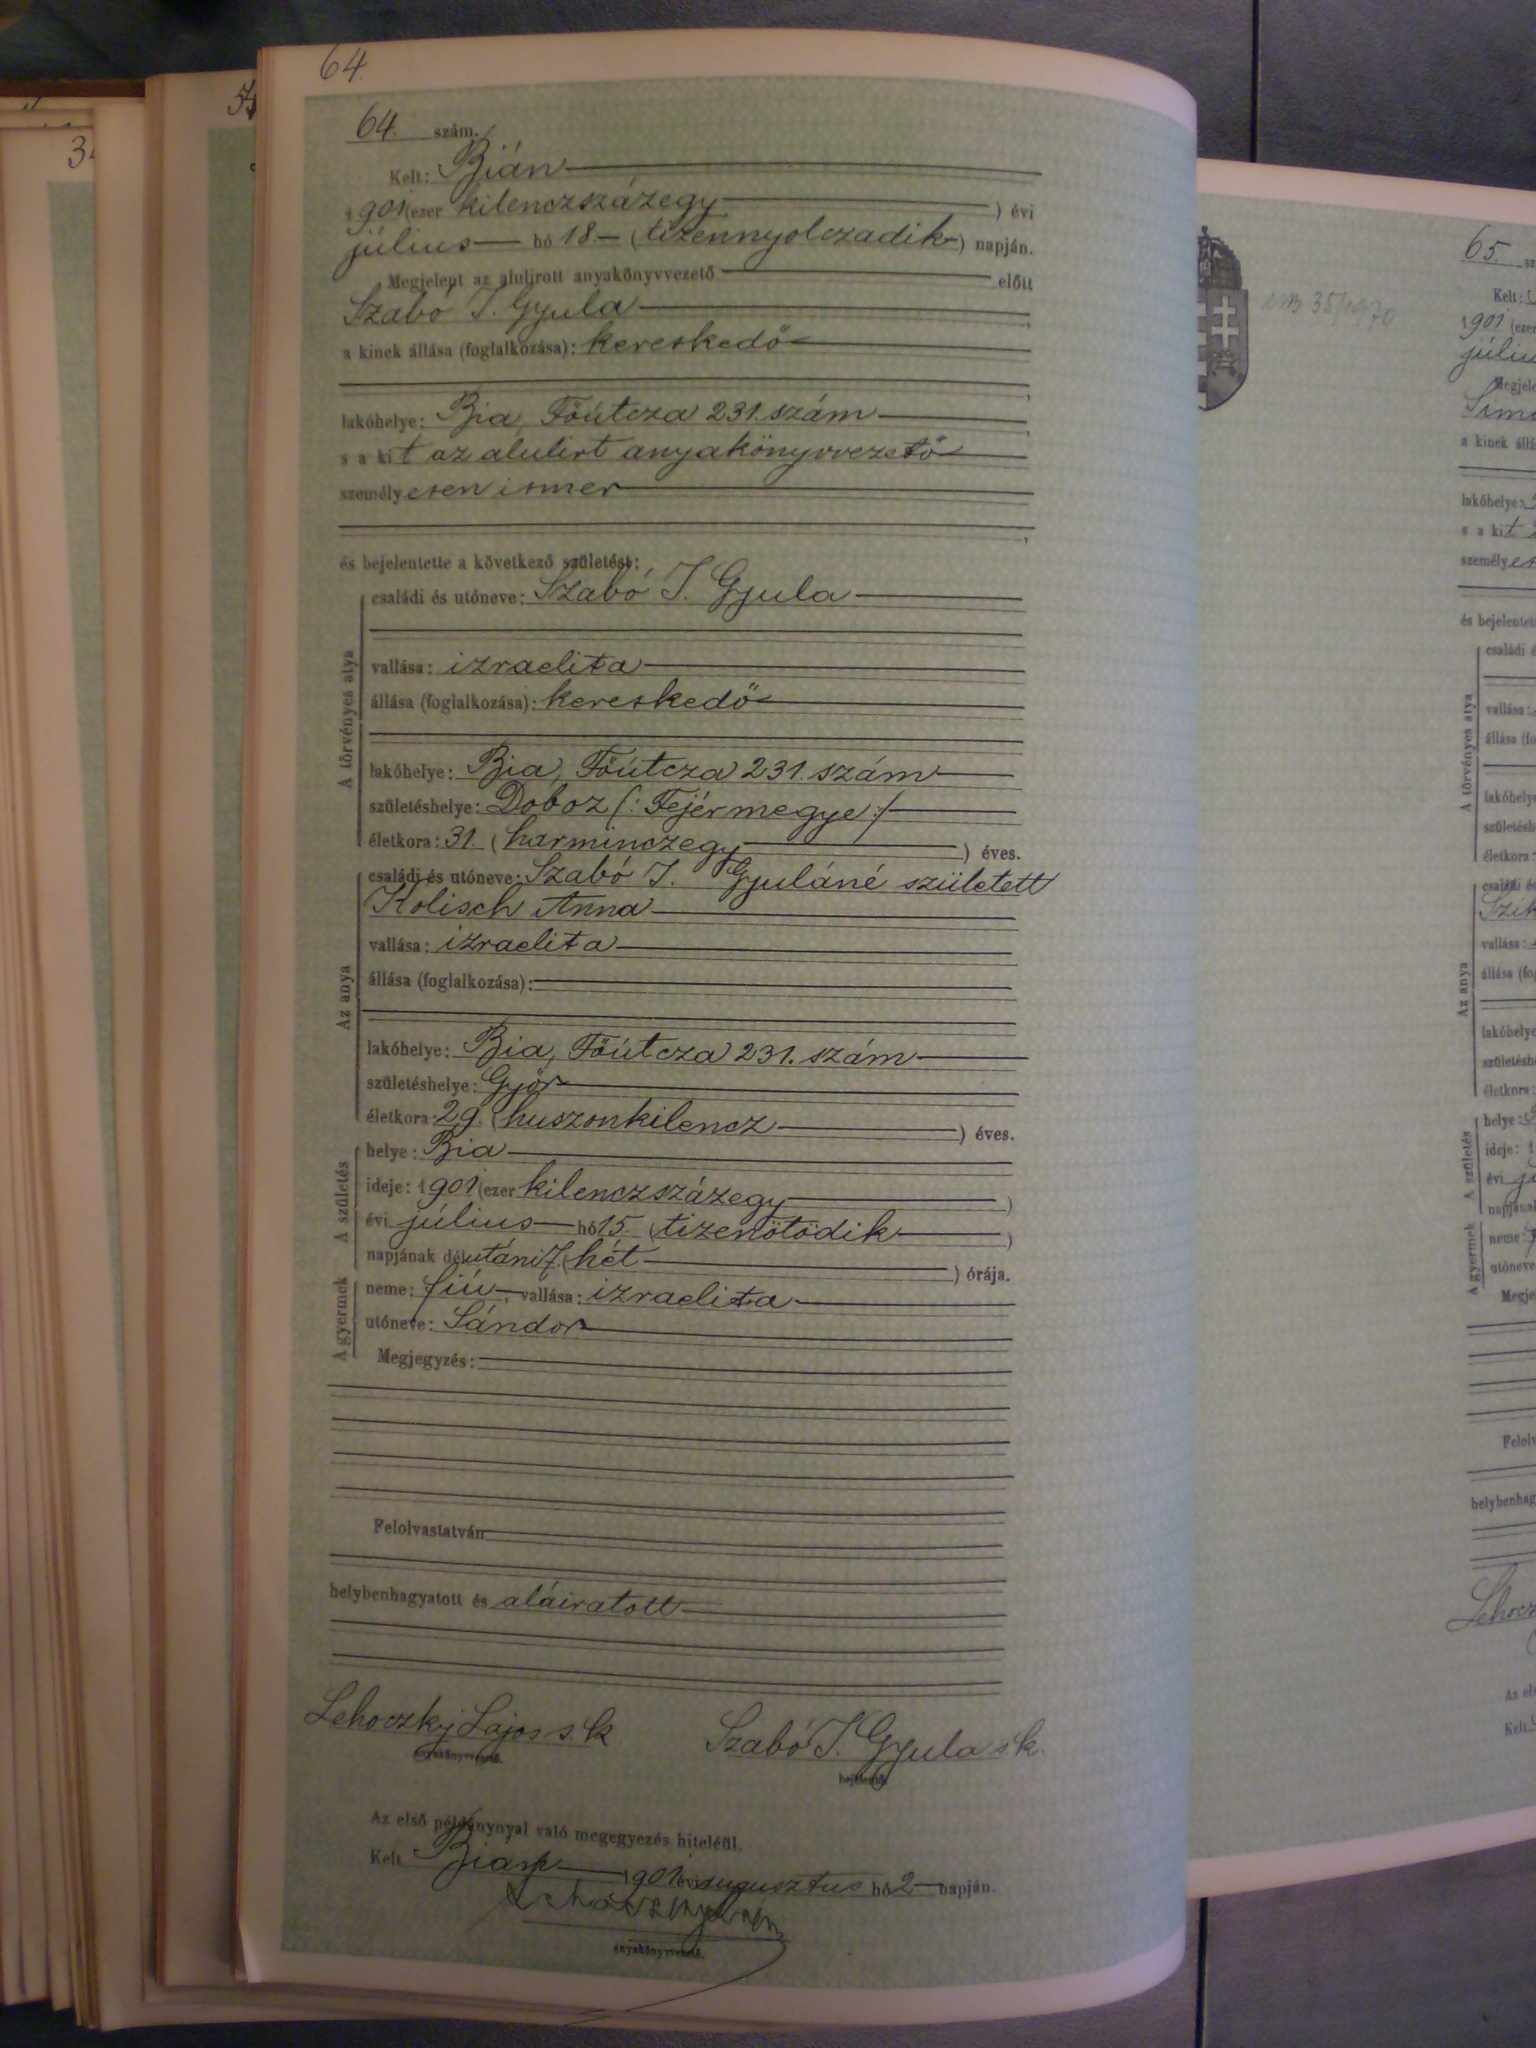 64.
64. szám.
Kelt: Bián
1901 (ezer kilenczszázegy ) évi
július hó 18 (tizennyolczadik) napján.
Megjelent az alulirott anyakönyvvezető előtt
Szabó J. Gyula
a kinek állása (foglalkozása): kereskedő
lakóhelye: Bia, Főútcza 231. szám
s a kit az alulirt anyakönyvvezető
személyesen ismer
és bejelentette a következő születést:
A törvényes atya
családi és utóneve: Szabó J. Gyula
vallása: izraelita
állása (foglalkozása): kereskedő
lakóhelye: Bia, Főútcza 231. szám
születéshelye: Doboz (: Fejérmegye :)
életkora: 31. (harminczegy ) éves.
Az anya
családi és utóneve: Szabó J. Gyuláné született
Kolisch Anna
vallása: izraelita
állása (foglalkozása):
lakóhelye: Bia, Főútcza 231. szám
születéshelye: Győr
életkora: 29. (huszonkilencz ) éves.
A születés
helye: Bia
ideje: 1901 (ezer kilenczszázegy )
évi július hó 15. (tizenötödik )
napjának délutáni 7. (hét ) órája.
A gyermek
neme: fiú, vallása: izraelita
utóneve: Sándor
Megjegyzés:
Felolvastatván
helybenhagyatott és aláiratott
Lehoczky Lajos s. k. Szabó J. Gyula s. k.
anyakönyvvezető. bejelentő.
Az első példánynyal való megegyezés hiteléül.
Kelt Bián 1901 évi augusztus hó 2 napján.
anyakönyvvezető.
65.
Kelt:
1901 (ezer
lakóhelye:
s a kit
és
vallása:
lakóhelye
életkora:
Az anya
vallása:
lakóhelye
életkora:
A születés
helye:
ideje: 1
évi
A gyermek
neme:
utóneve
Kelt